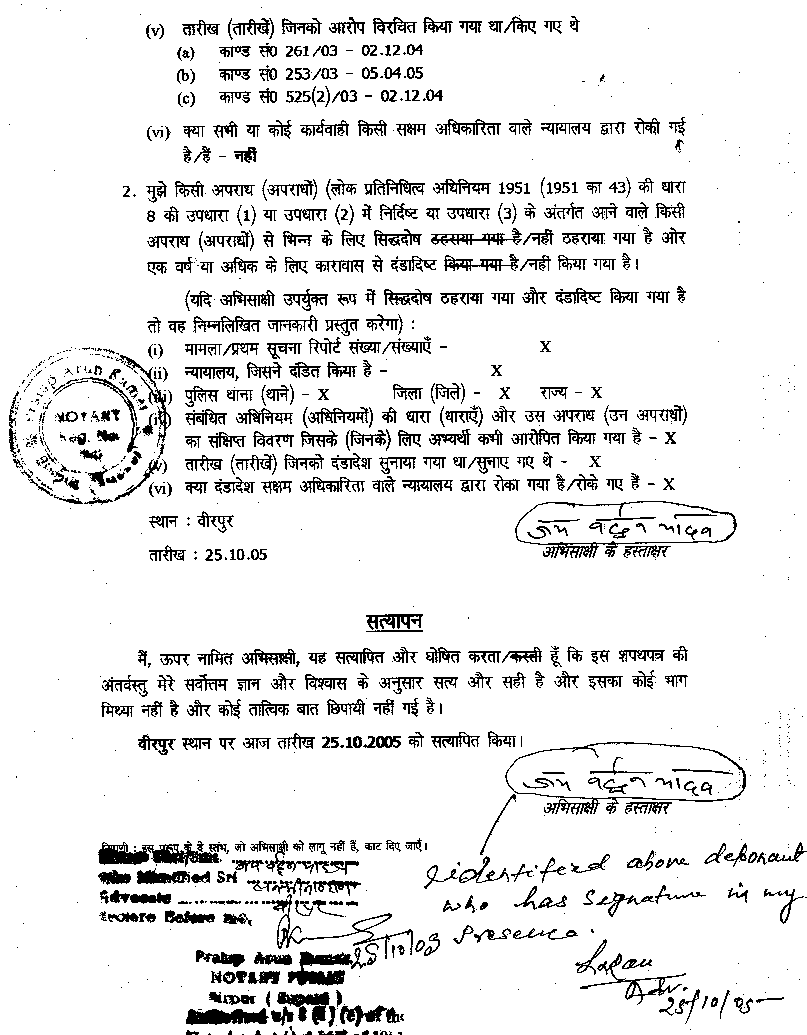 (v) तारीख (तारीखें) जिनको आरोप विरचित किया गया था/किए गए थे
(a) काण्ड सं0 261/03 - 02.12.04
(b) काण्ड सं0 253/03 - 05.04.05
(c) काण्ड सं0 525(2)/03 - 02.12.04
(vi) क्या सभी या कोई कार्यवाही किसी सक्षम अधिकारिता वाले न्यायालय द्वारा रोकी गई
है/हैं - नहीं
2. मुझे किसी अपराध (अपराधों) (लोक प्रतिनिधित्व अधिनियम 1951 (1951 का 43) की धारा
8 की उपधारा (1) या उपधारा (2) में निर्दिष्ट या उपधारा (3) के अंतर्गत आने वाले किसी
अपराध (अपराधों) से भिन्न के लिए सिद्धदोष ठहराया गया है/नहीं ठहराया गया है ओर
एक वर्ष या अधिक के लिए कारावास से दंडादिष्ट किया गया है/नहीं किया गया है।
(यदि अभिसाक्षी उपर्युक्त रूप में सिद्धदोष ठहराया गया और दंडादिष्ट किया गया है
तो वह निम्नलिखित जानकारी प्रस्तुत करेगा) :
(i) मामला/प्रथम सूचना रिपोर्ट संख्या/संख्याएँ - X
(ii) न्यायालय, जिसने दंडित किया है - X
(iii) पुलिस थाना (थाने) - X जिला (जिले) - X राज्य - X
(iv) संबंधित अधिनियम (अधिनियमों) की धारा (धाराएँ) और उस अपराध (उन अपराधों)
का संक्षिप्त विवरण जिसके (जिनके) लिए अभ्यर्थी कभी आरोपित किया गया है - X
(v) तारीख (तारीखें) जिनको दंडादेश सुनाया गया था/सुनाए गए थे - X
(vi) क्या दंडादेश सक्षम अधिकारिता वाले न्यायालय द्वारा रोका गया है/रोके गए हैं - X
NOTARY
Reg. No.
स्थान : वीरपुर
जय वर्द्धन यादव
तारीख : 25.10.05
अभिसाक्षी के हस्ताक्षर
सत्यापन
मैं, ऊपर नामित अभिसाक्षी, यह सत्यापित और घोषित करता/करती हूँ कि इस शपथपत्र की
अंतर्वस्तु मेरे सर्वोत्तम ज्ञान और विश्वास के अनुसार सत्य और सही है और इसका कोई भाग
मिथ्या नहीं है और कोई तात्विक बात छिपायी नहीं गई है।
वीरपुर स्थान पर आज तारीख 25.10.2005 को सत्यापित किया।
जय वर्द्धन यादव
अभिसाक्षी के हस्ताक्षर
टिप्पणी : इस प्ररूप के वे स्तंभ, जो अभिसाक्षी को लागू नहीं हैं, काट दिए जाएँ।
जय वर्द्धन यादव
Who Identified Sri
Advocate
Before me.
I identiferd above deponaut
who has signature in my
Presence.
Pratap Arun
NOTARY
Birpur ( Supaul )
Adv.
25/10/05